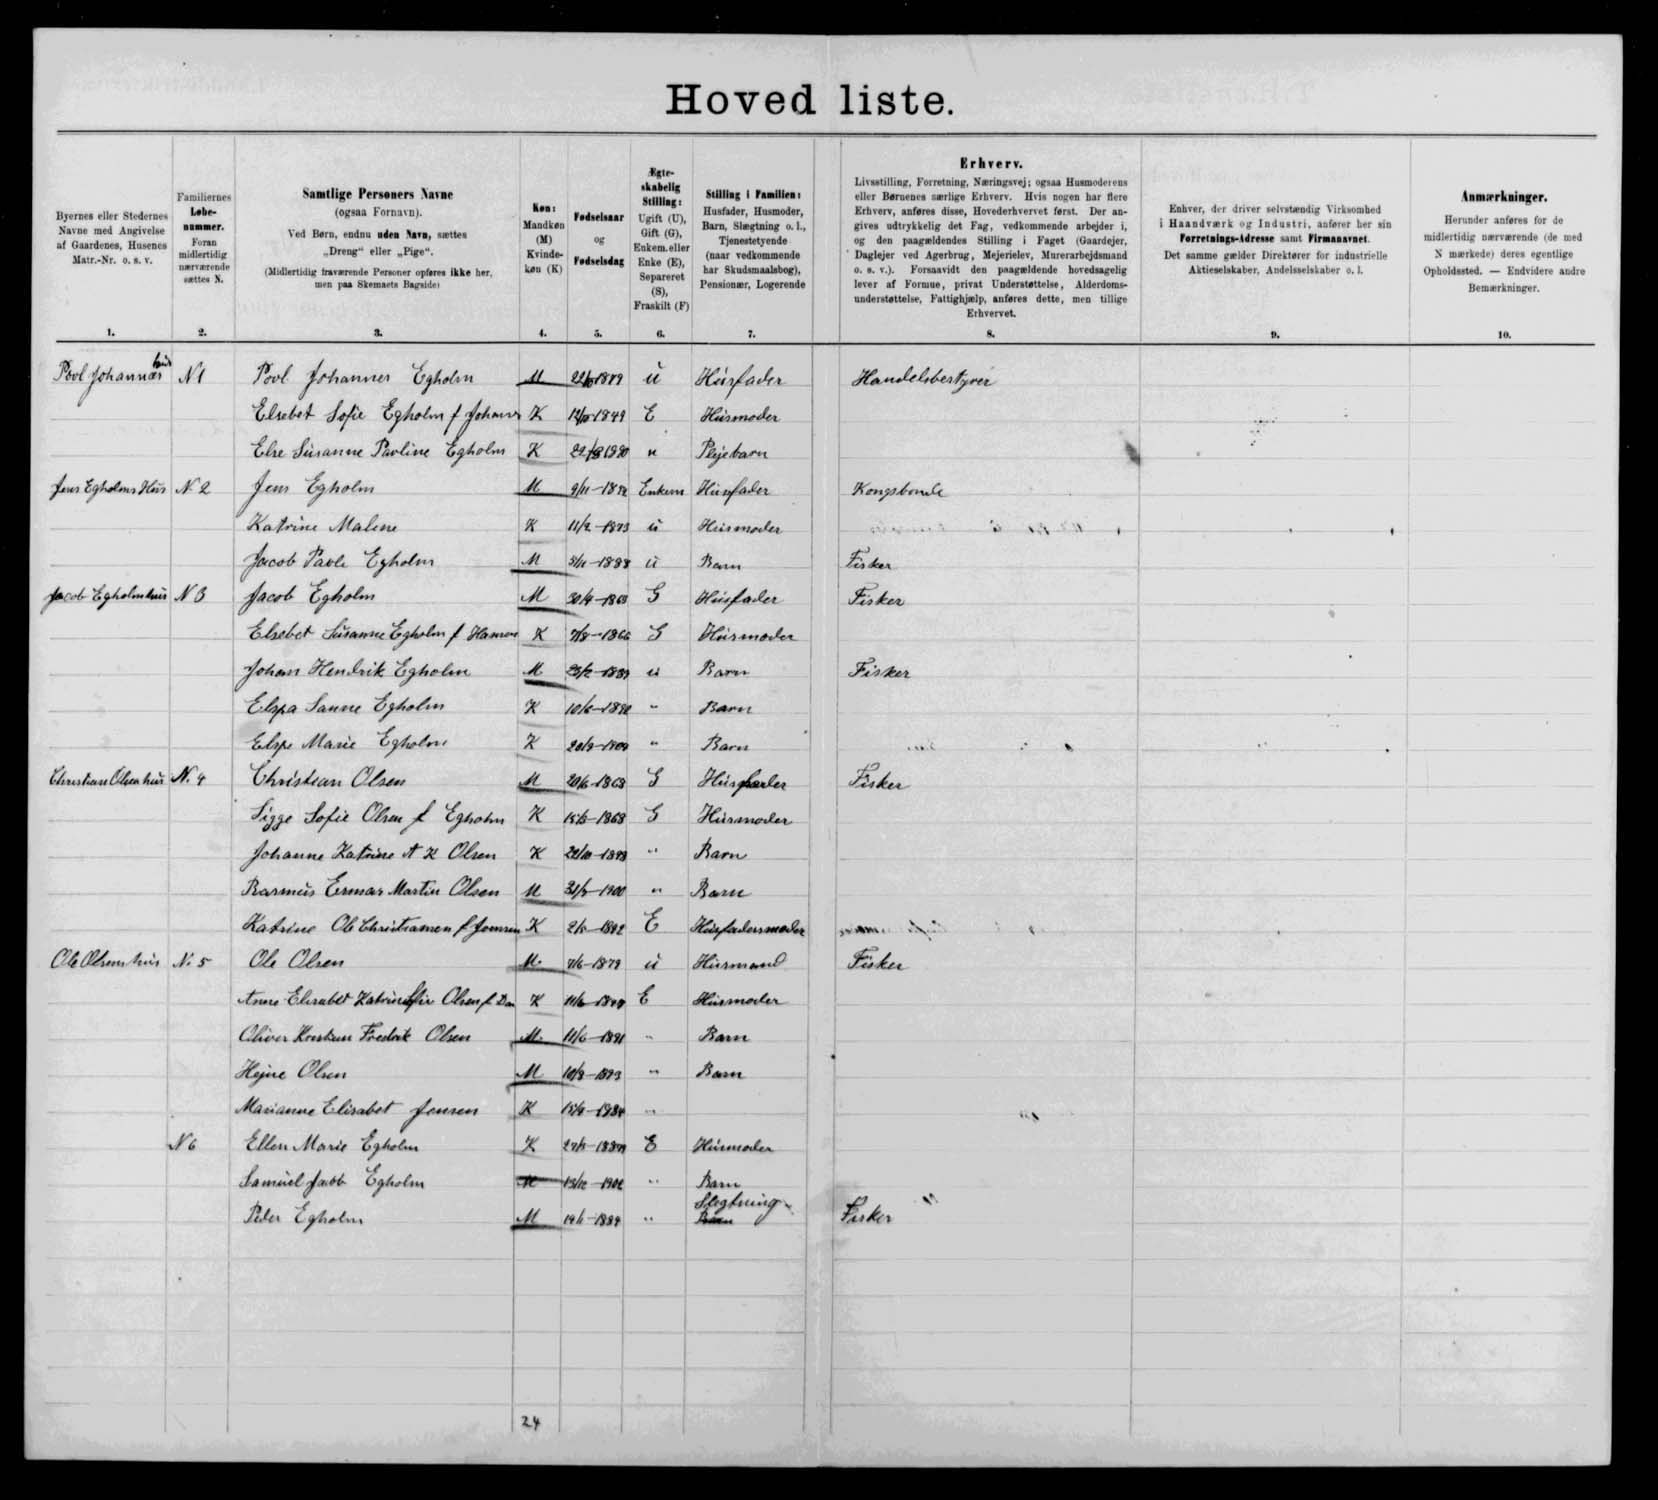 Hoved liste.
Byernes eller Stedernes Navne med Angivelse af Gaardenes, Husenes Matr.-Nr. o. s. v.
Familiernes Løbe-nummer. Foran midlertidig nærværende sættes N.
Samtlige Personers Navne
(ogsaa Fornavn).
Ved Børn, endnu uden Navn, sættes
„Dreng“ eller „Pige“.
(Midlertidig fraværende Personer opføres ikke her,
men paa Skemaets Bagside)
Køn: Mandkøn (M) Kvinde-køn (K)
Fødselsaar og Fødselsdag
Ægte-skabelig Stilling: Ugift (U), Gift (G), Enkem. eller Enke (E), Separeret (S), Fraskilt (F)
Stilling i Familien: Husfader, Husmoder, Barn, Slægtning o. l., Tjenestetyende (naar vedkommende har Skudsmaalsbog), Pensionær, Logerende
Erhverv.
Livsstilling, Forretning, Næringsvej; ogsaa Husmoderens
eller Børnenes særlige Erhverv. Hvis nogen har flere
Erhverv, anføres disse, Hovederhvervet først. Der an-
gives udtrykkelig det Fag, vedkommende arbejder i,
og den paagældendes Stilling i Faget (Gaardejer,
Daglejer ved Agerbrug, Mejerielev, Murerarbejdsmand
o. s. v.). Forsaavidt den paagældende hovedsagelig
lever af Formue, privat Understøttelse, Alderdoms-
understøttelse, Fattighjælp, anføres dette, men tillige
Erhvervet.
Enhver, der driver selvstændig Virksomhed
i Haandværk og Industri, anfører her sin
Forretnings-Adresse samt Firmanavnet.
Det samme gælder Direktører for industrielle
Aktieselskaber, Andelsselskaber o. l.
Anmærkninger.
Herunder anføres for de
midlertidig nærværende (de med
N mærkede) deres egentlige
Opholdssted. — Endvidere andre
Bemærkninger.
1. 2. 3. 4. 5. 6. 7. 8. 9. 10.
Povl Johannes hus N 1 Povl Johannes Egholm M 1879 u Husfader Handelsbestyrer
Elsebet Sofie Egholm f Johannes K 1849 E Husmoder
Else Susanne Pavline Egholm K Plejebarn
Jens Egholms Hus N 2 Jens Egholm M 9/11 Enkem Husfader Kongsbonde
Katrine Malene K 11/2 u Husmoder
Jacob Pavli Egholm M 1888 u Barn Fisker
Jacob Egholmhus N 3 Jacob Egholm M G Husfader Fisker
Elsebet Susanne Egholm f Hansen K 7/8-1866 G Husmoder
Johan Hendrik Egholm M u Barn Fisker
Elspa Sanne Egholm K " Barn
Elspe Marie Egholm K " Barn
Christian Olsen hus N. 4 Christian Olsen M 20/6-1863 G Husfader Fisker
Sigge Sofie Olsen f Egholm K 1868 G Husmoder
Johanne Katrine A K Olsen K " Barn
Rasmus Ermar Martin Olsen M 1900 " Barn
Katrine Ole Christiansen f Jensen K E Husfadersmoder
Ole Olsens hus N. 5 Ole Olsen M. 7/6-1879 u Husmand Fisker
Anne Elisabet Katrine Sofie Olsen f Dan K E Husmoder
Oliver Kristian Fredrik Olsen M. 11/6-1891 " Barn
Hejne Olsen M 1893 " Barn
Marianne Elisabet Jensen K "
N 6 Ellen Marie Egholm K E Husmoder
Samuel Jacob Egholm M " Barn
Slegtning
Peder Egholm M " Barn Fisker
24